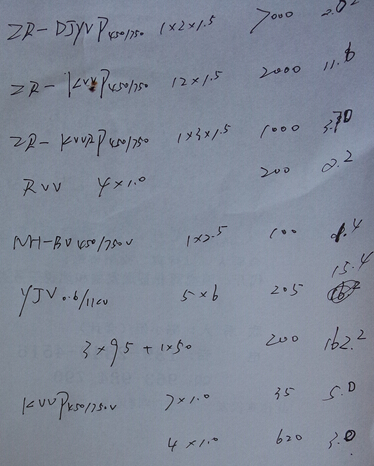 ZR-DJYVP450/750 1x2x1.5 7000 2.02
ZR-KVVP450/750 12x1.5 2000 11.6
ZR-KVVRP450/750 1x3x1.5 1000
RVV 4x1.0 200 2.2
NH-BV450/750V 1x2.5 100 1.4
15.4
YJV0.6/1KV 5x6 205
3x95+1x50 200 162.2
KVVP450/750V 7x1.0 35 5.0
4x1.0 620 3.0